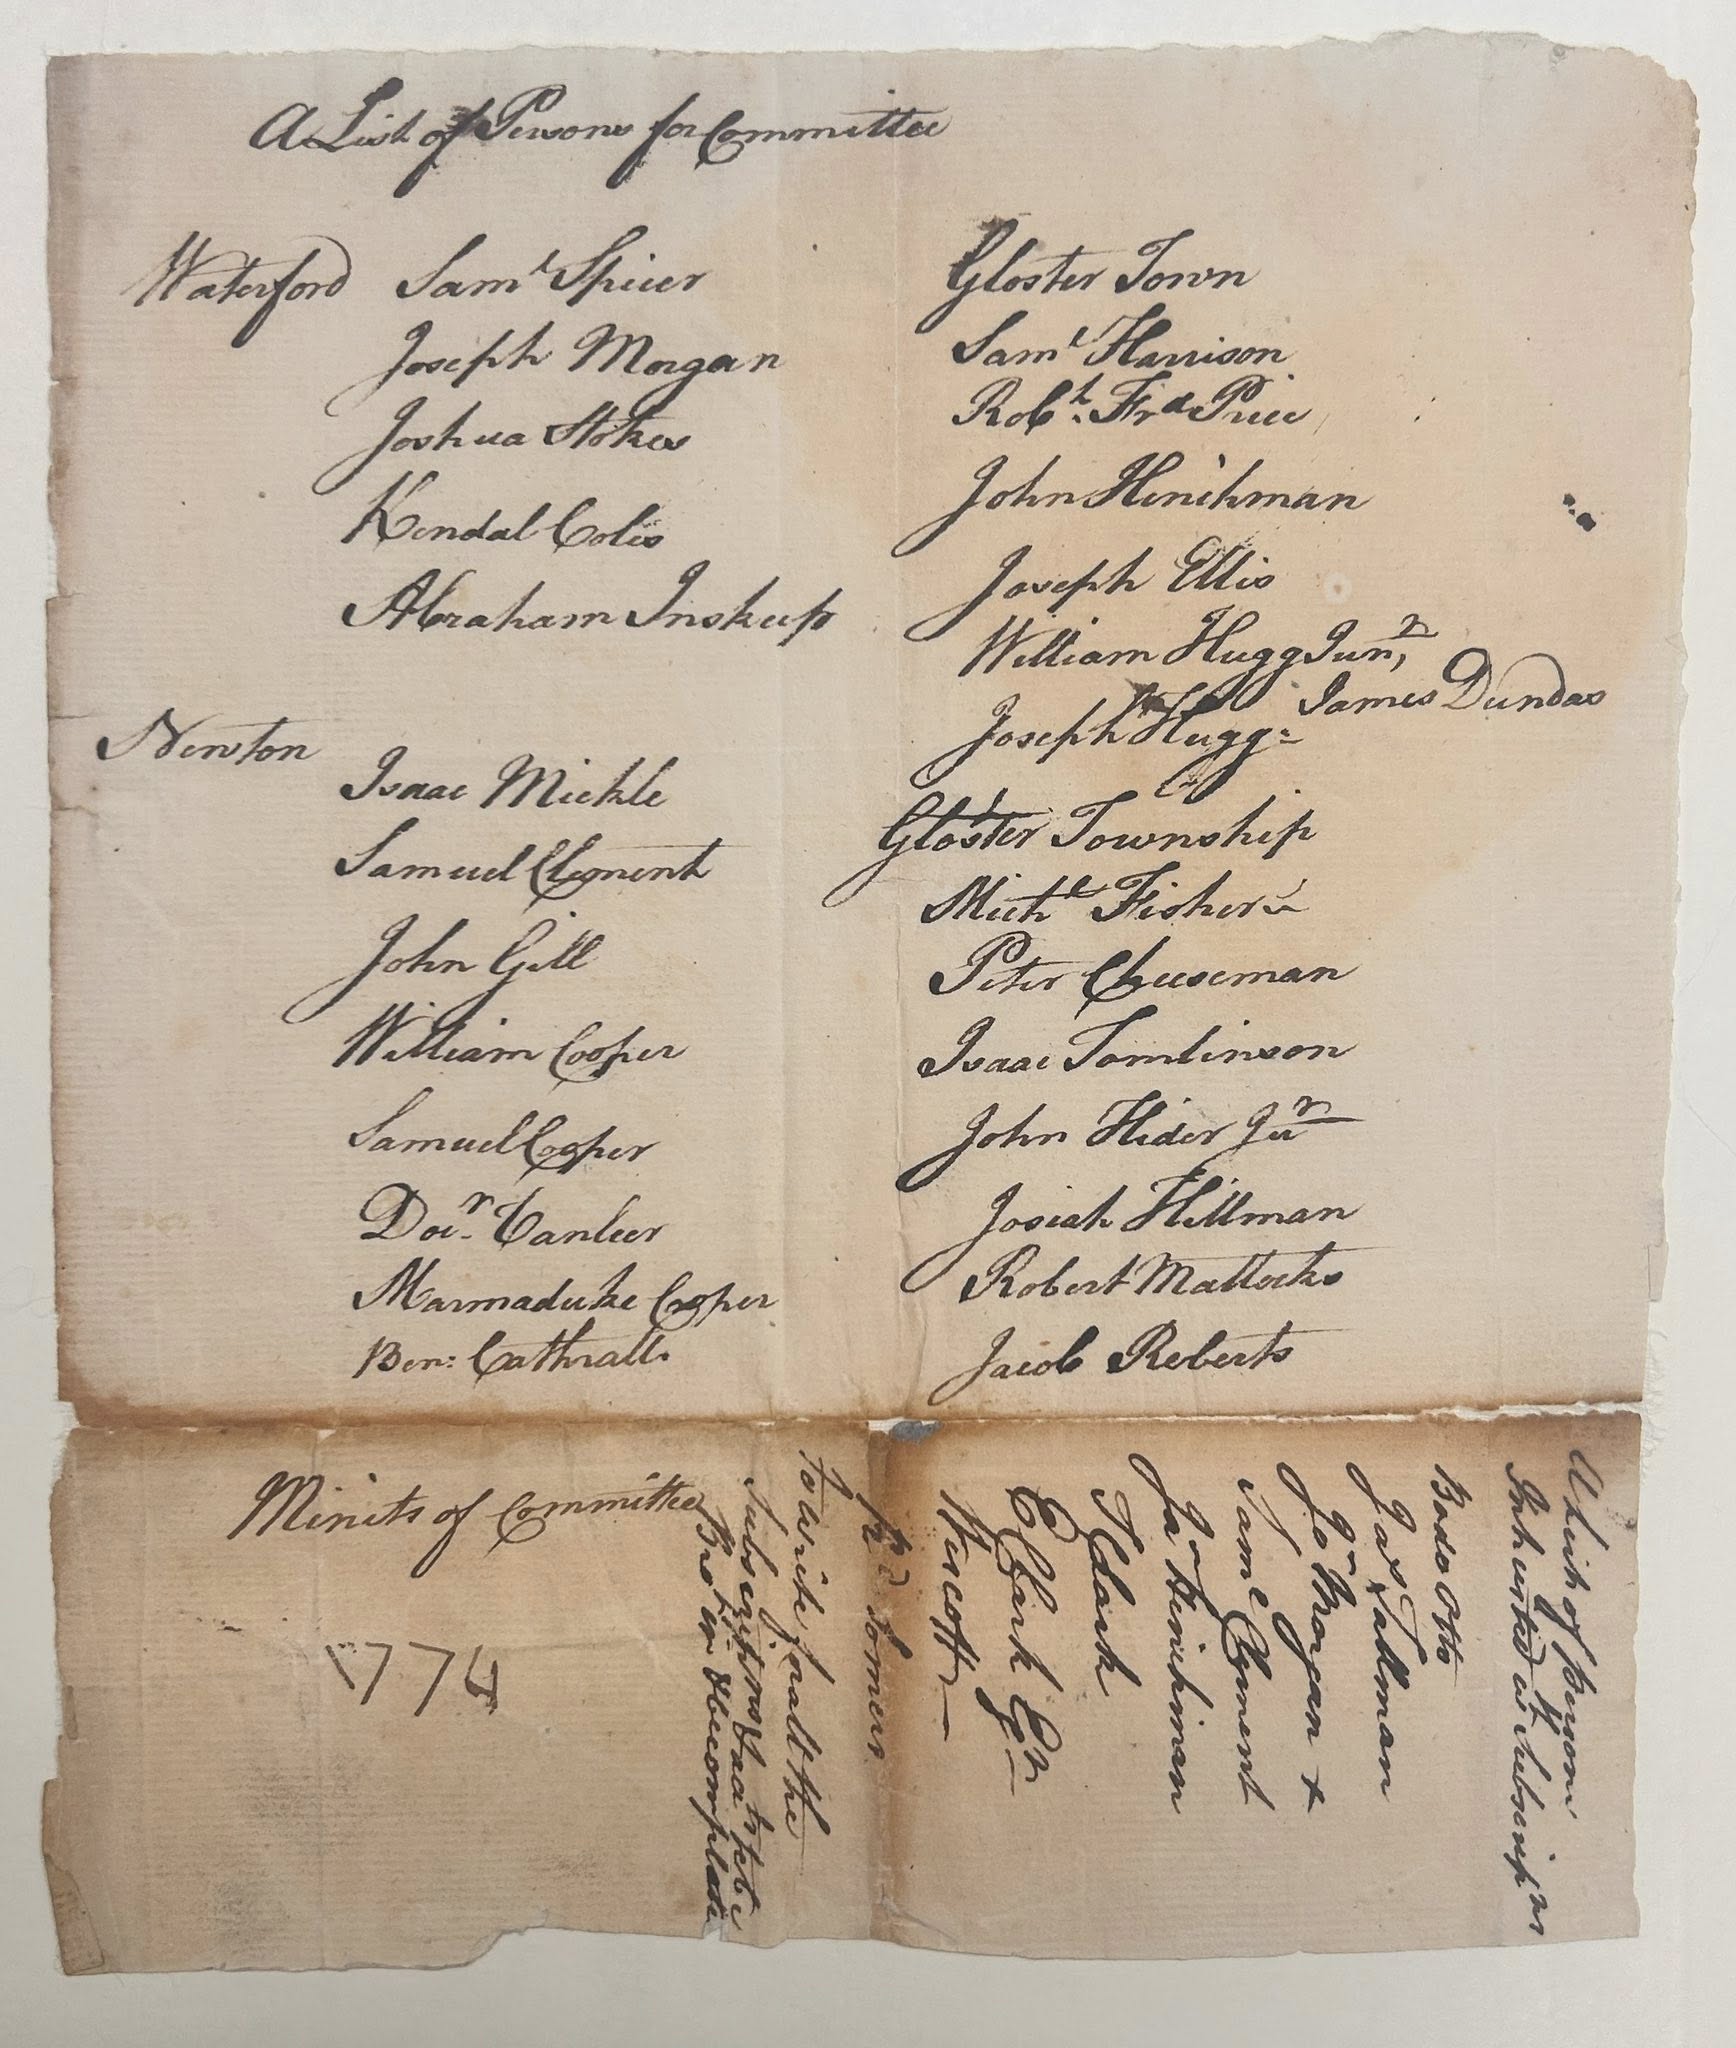 A List of Persons for Committee
Waterford Saml Spicer
Joseph Morgan
Joshua Stokes
Kendal Coles
Abraham Inskeep
Newton
Isaac Mickle
Samuel Clement
John Gill
William Cooper
Samuel Cooper
Docr. Vanleer
Marmaduke Cooper
Ben: Cathrall.
Gloster Town
Saml Harrison
Robt. Frd Price
John Hinchman
Joseph Ellis
William Hugg Junr,
James Dundas
Joseph Hugg
Gloster Township
Michl Fisher
Peter Cheeseman
Isaac Tomlinson
John Hider Jur
Josiah Hillman
Robert Mattocks
Jacob Roberts
Minits of Committee
1774
A List of Persons
Intrusted wth Subscripns
Bodo Otto
Jas Tallman
Jo Morgan +
Saml Clement
Jn Hinchman
T Clark
E Clark Egr
Wescott
Somers
To write for all the
Subscriptns that
be compleat